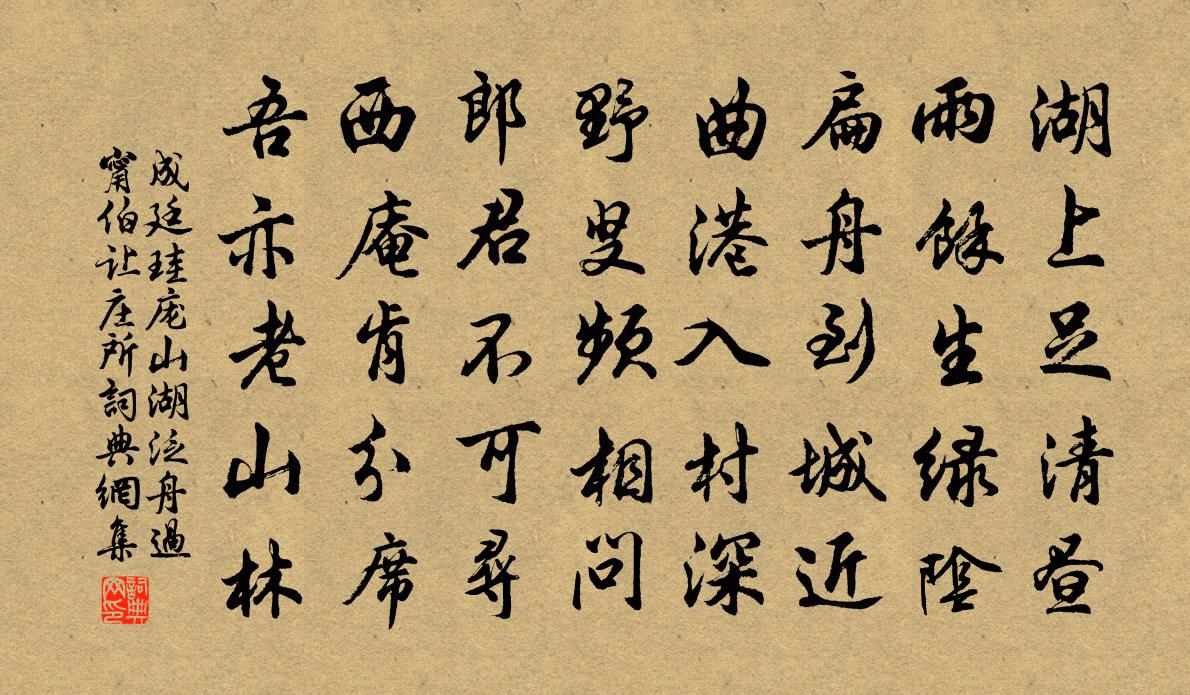 湖上足清昼
雨餘生绿陰
扁舟到城近
曲港入村深
野叟频相问
郎君不可尋
西庵肯分席
吾亦老山林
成廷珪庑山湖泛舟過
甯伯让庄所詞典網集
詞典网印